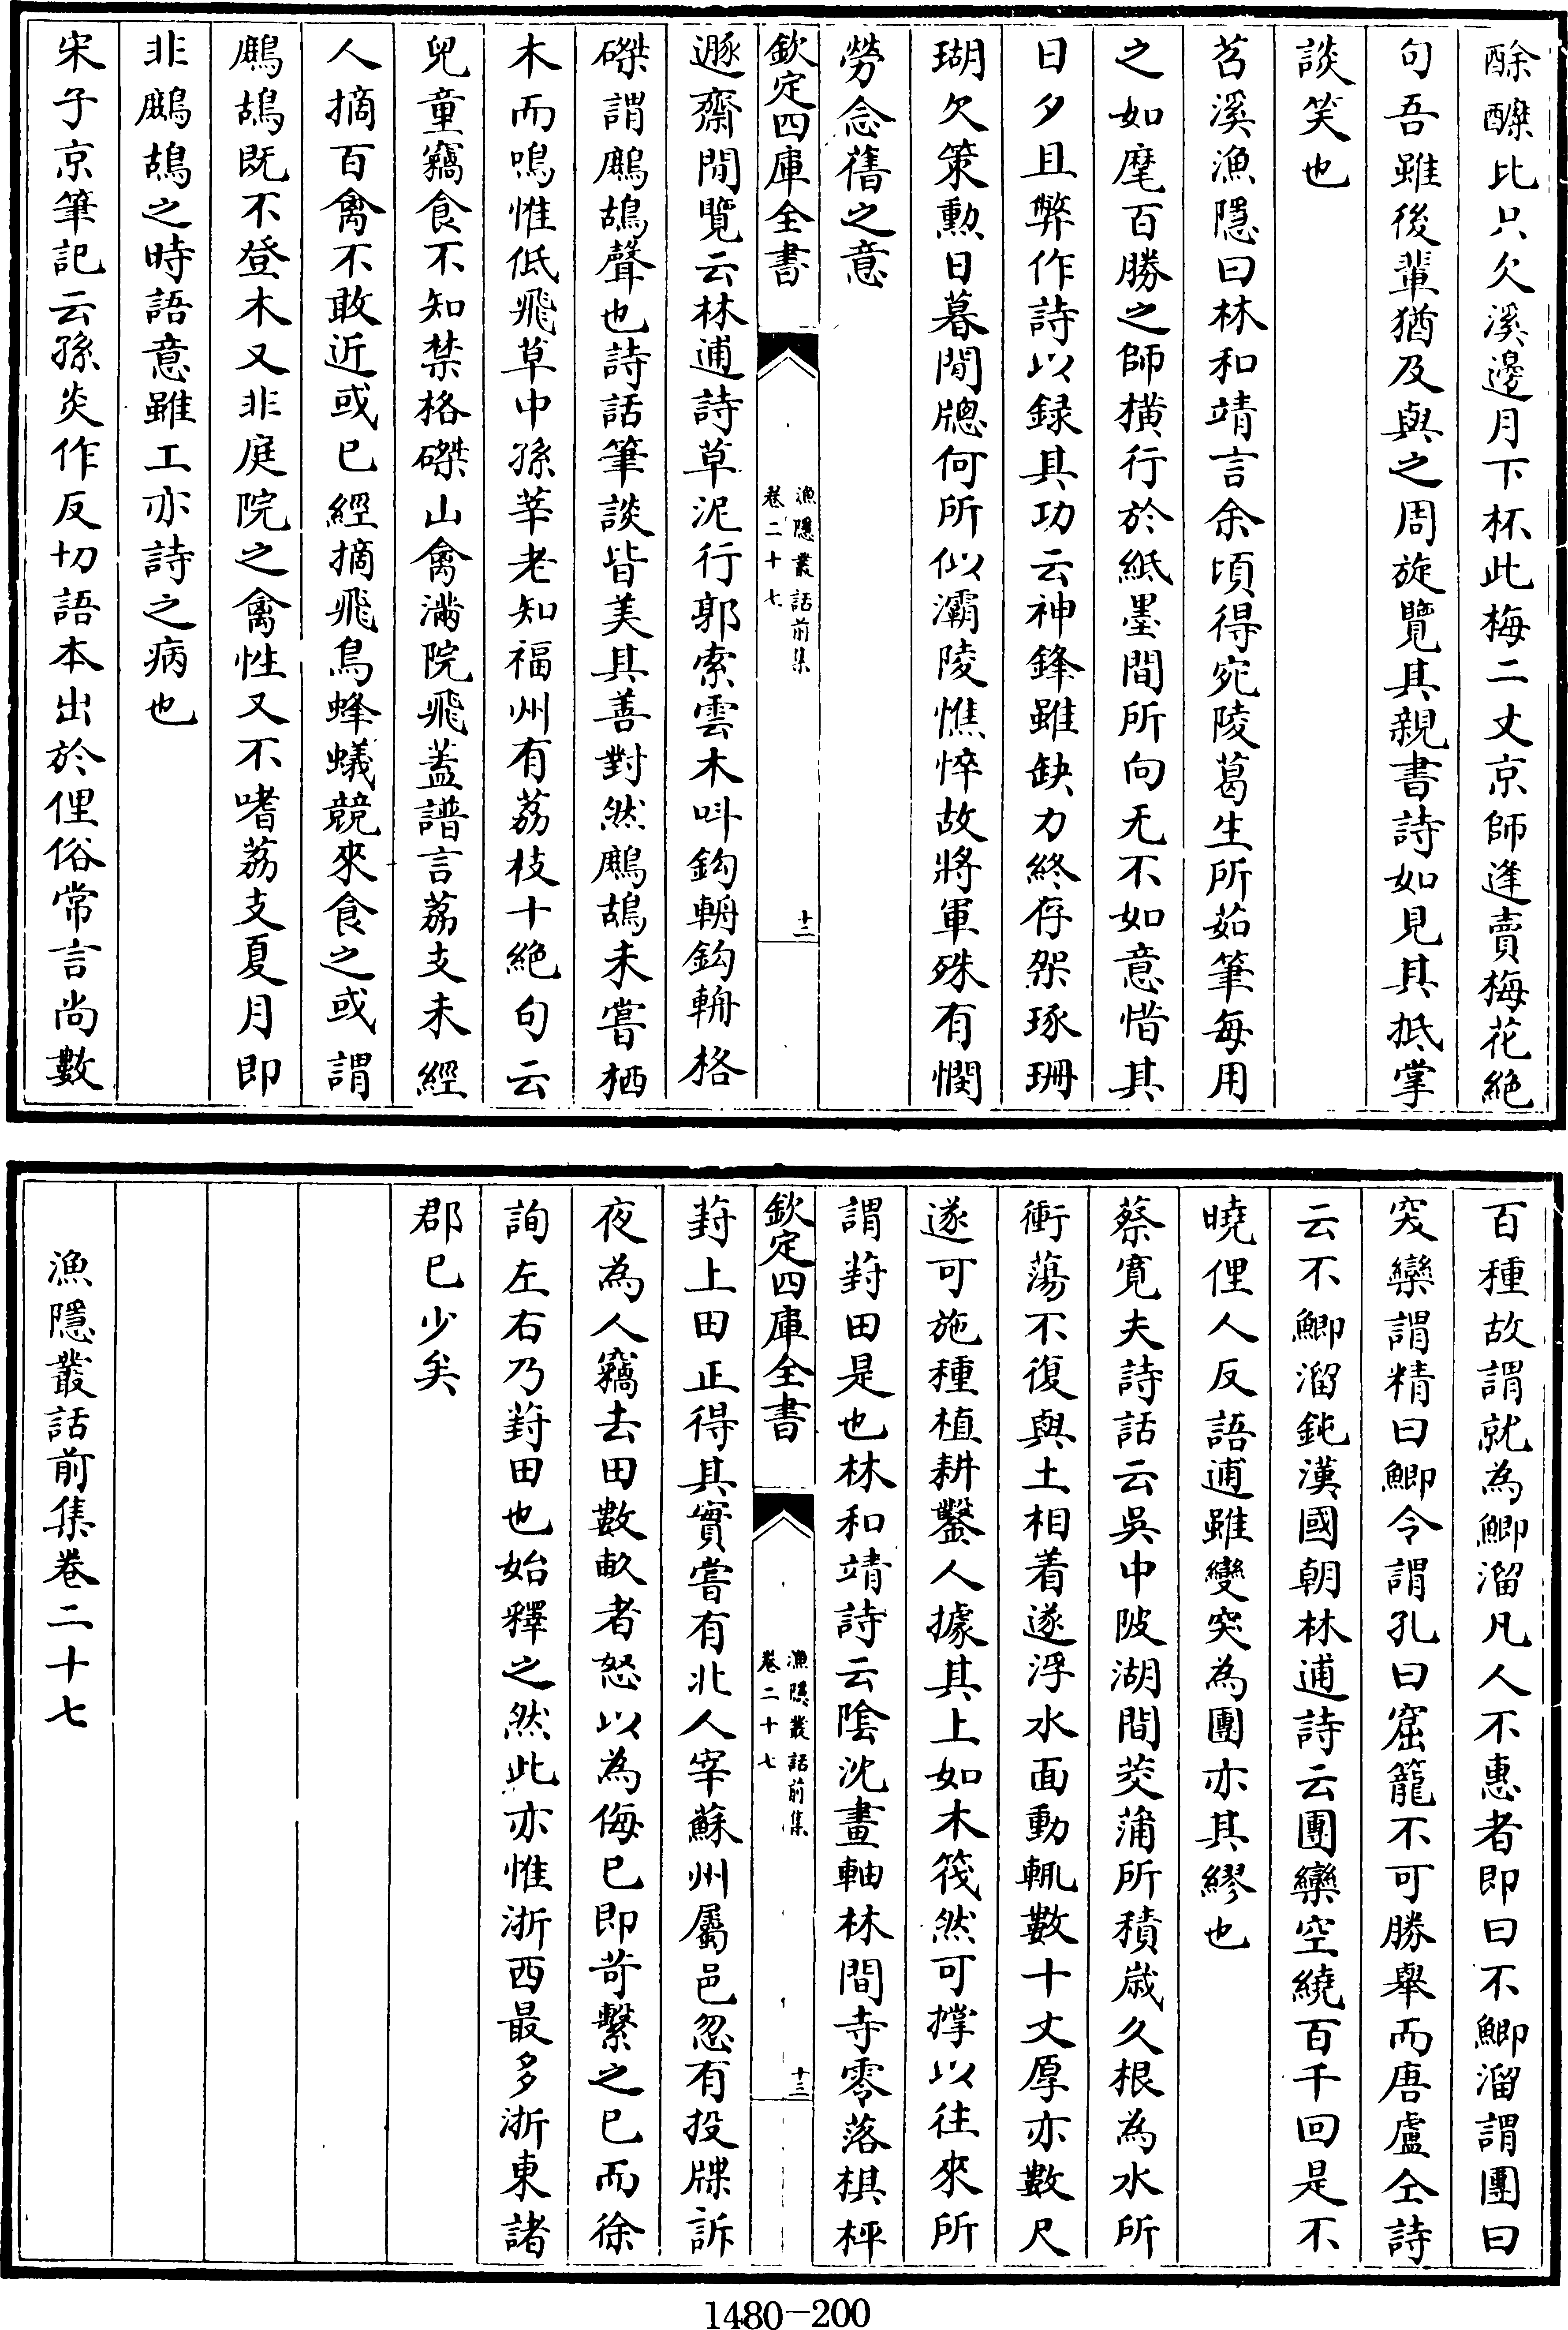 酴醾比只欠溪邊月下杯此梅二丈京師逢賣梅花絶
句吾雖後輩猶及與之周旋覽其親書詩如見其抵掌
談笑也
苕溪漁隱曰林和靖言余頃得宛陵葛生所茹筆每用
之如麾百勝之師横行於紙墨間所向无不如意惜其
日夕且弊作詩以録其功云神鋒雖缺力終存架琢珊
瑚欠策勲日暮閒牕何所似灞陵憔悴故將軍殊有憫
勞念舊之意
欽定四庫全書
漁隱叢話前集
卷二十七
十二
遯齋閒覽云林逋詩草泥行郭索雲木叫鈎輈鈎輈格
磔謂鷓鴣聲也詩話筆談皆美其善對然鷓鴣未嘗栖
木而鳴惟低飛草中孫莘老知福州有荔枝十絶句云
兒童竊食不知禁格磔山禽滿院飛盖譜言荔支未經
人摘百禽不敢近或已經摘飛鳥蜂蟻競來食之或謂
鷓鴣既不登木又非庭院之禽性又不嗜荔支夏月即
非鷓鴣之時語意雖工亦詩之病也
宋子京筆記云孫炎作反切語本出於俚俗常言尚數
百種故謂就為鯽溜凡人不惠者即曰不鯽溜謂團曰
突欒謂精曰鯽令謂孔曰窟籠不可勝舉而唐盧仝詩
云不鯽溜鈍漢國朝林逋詩云團欒空繞百千回是不
曉俚人反語逋雖變突為團亦其繆也
蔡寛夫詩話云吳中陂湖間茭蒲所積歲久根為水所
衝蕩不復與土相着遂浮水面動輒數十丈厚亦數尺
遂可施種植耕鑿人據其上如木筏然可撑以往來所
謂葑田是也林和靖詩云隂沈畫軸林間寺零落棋枰
欽定四庫全書
漁隱叢話前集
卷二十七
十三
葑上田正得其實嘗有北人宰蘇州屬邑忽有投牒訴
夜為人竊去田數畝者怒以為侮已即苛繫之已而徐
詢左右乃葑田也始釋之然此亦惟浙西最多浙東諸
郡已少矣
漁隱叢話前集卷二十七
1480-200